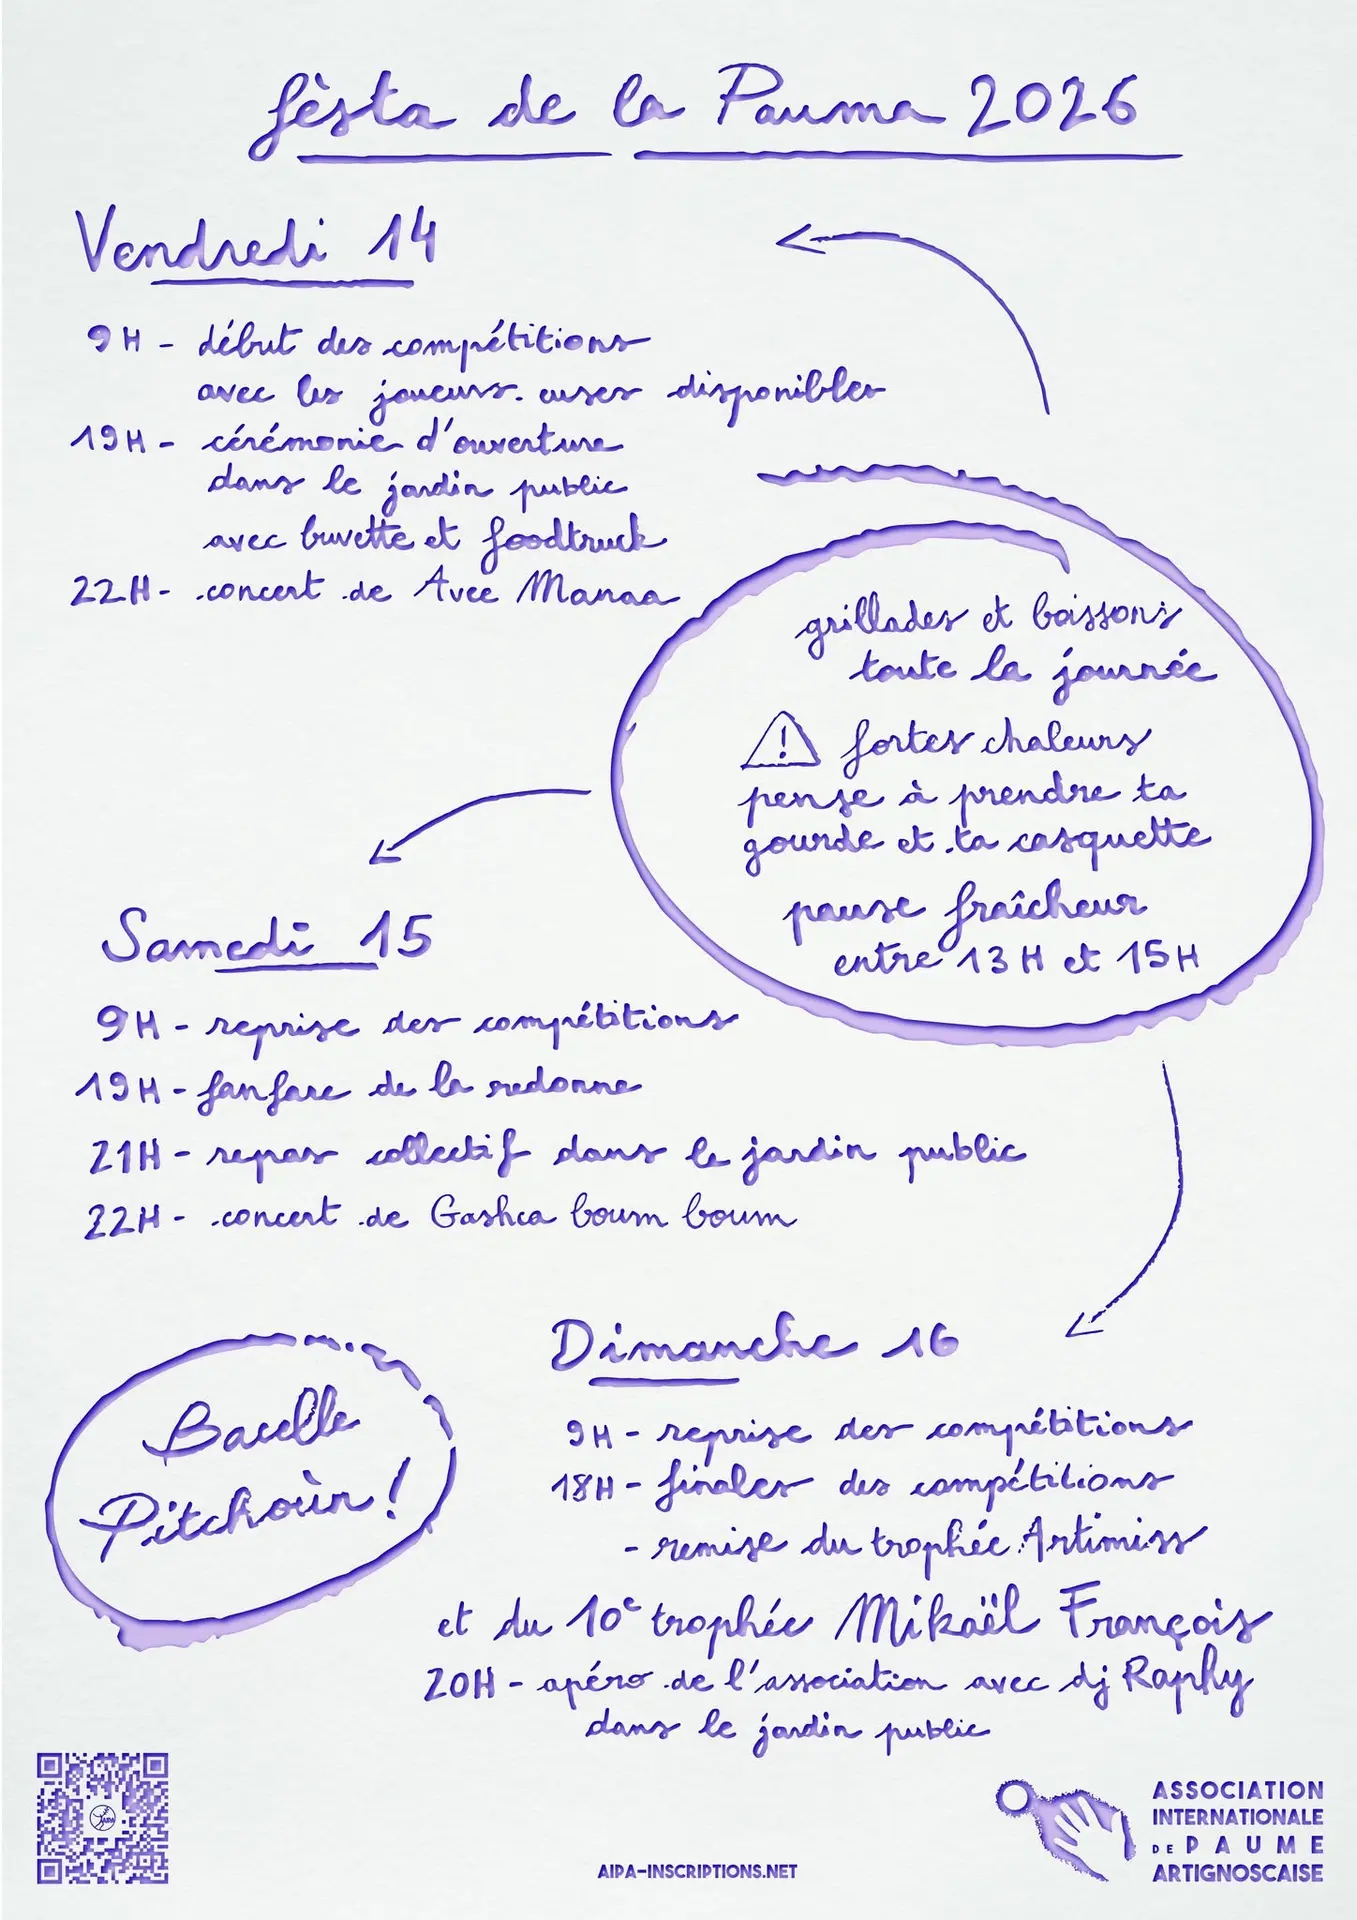 fèsta de la Pauma 2026
Vendredi 14
9H - début des compétitions
avec les joueurs.euses disponibles
19H - cérémonie d'ouverture
dans le jardin public
avec buvette et foodtruck
22H - concert de Avee Manaa
grillades et boissons
toute la journée
⚠ fortes chaleurs
pense à prendre ta
gourde et ta casquette
pause fraîcheur
entre 13H et 15H
Samedi 15
9H - reprise des compétitions
19H - fanfare de la redonne
21H - repas collectif dans le jardin public
22H - concert de Gashca boum boum
Dimanche 16
9H - reprise des compétitions
18H - finales des compétitions
- remise du trophée Artimiss
et du 10e trophée Mikaël François
20H - apéro de l'association avec dj Raphy
dans le jardin public
Bacelle
Pitchoùn!
AIPA-INSCRIPTIONS.NET
ASSOCIATION
INTERNATIONALE
DE PAUME
ARTIGNOSCAISE